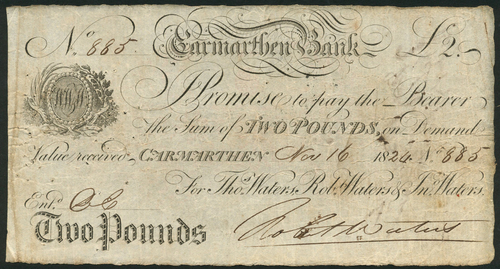 No. 885 Carmarthen Bank £2.
I Promise to pay the Bearer
the Sum of TWO POUNDS, on Demand
Value received CARMARTHEN Nov 16 1824 No. 885
For Thos. Waters, Robt. Waters & Jno. Waters.
Entd.
Two Pounds Robt Waters